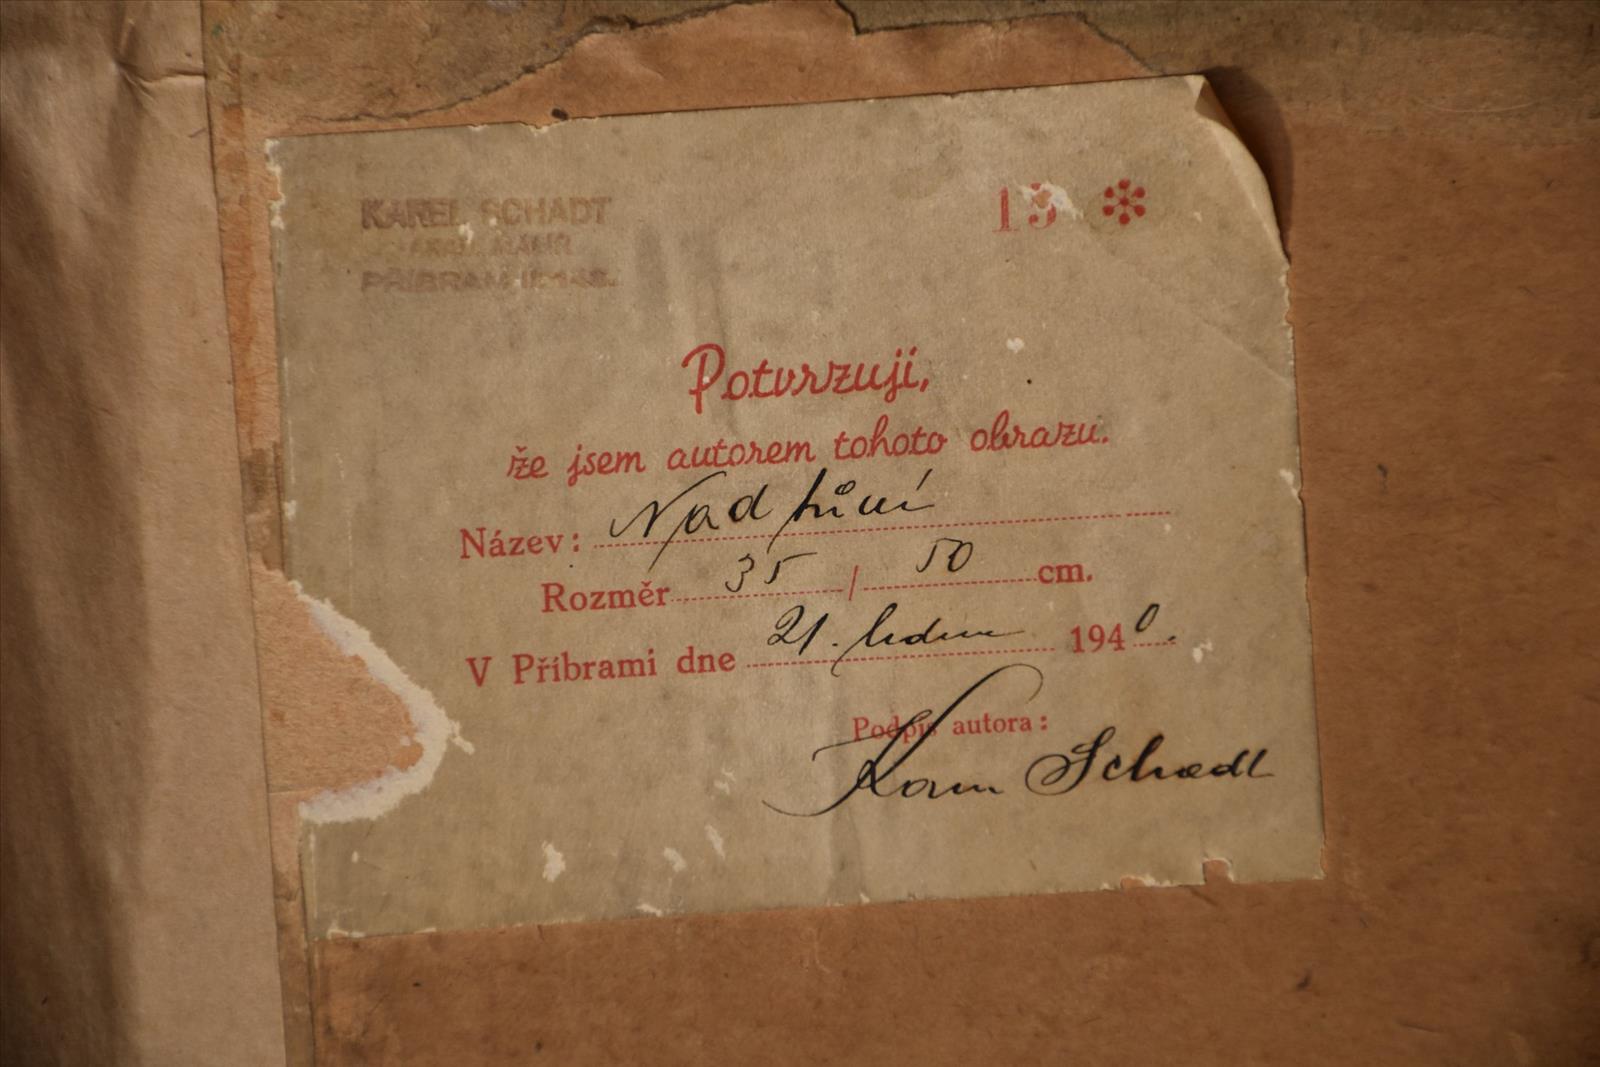 KAREL SCHADT
AKAD. MALÍŘ
PŘÍBRAM II.
15 *
Potvrzuji,
že jsem autorem tohoto obrazu.
Název: Nad tůní
Rozměr 35 / 50 cm.
V Příbrami dne 21. ledna 1940.
Podpis autora:
Schadt